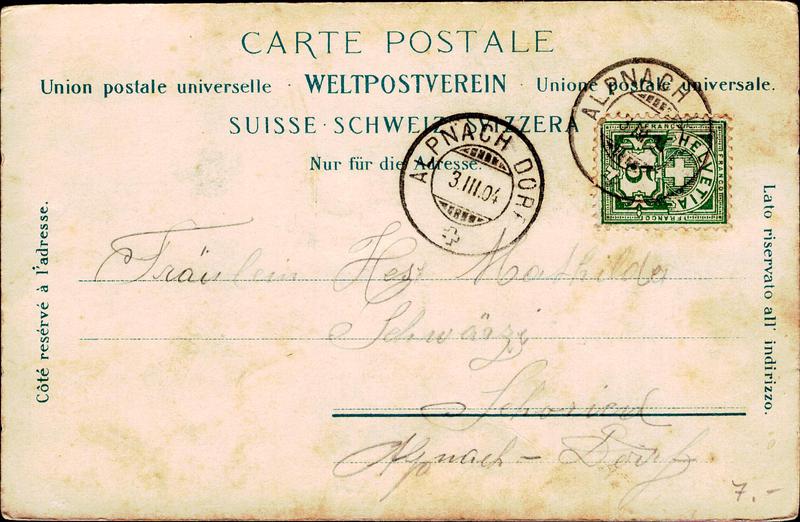 CARTE POSTALE
Union postale universelle · WELTPOSTVEREIN · Unione postale universale.
SUISSE · SCHWEIZ · SVIZZERA
Nur für die Adresse.
ALPNACH DORF
3.III.04
ALPNACH
FRANCO
HELVETIA
5
FRANCO
FRANCO
Côté reservé à l'adresse.
Lato riservato all' indirizzo.
Fräulein Hess Mathilda
Schwärzi
Schoried
Alpnach - Dorf
7.-